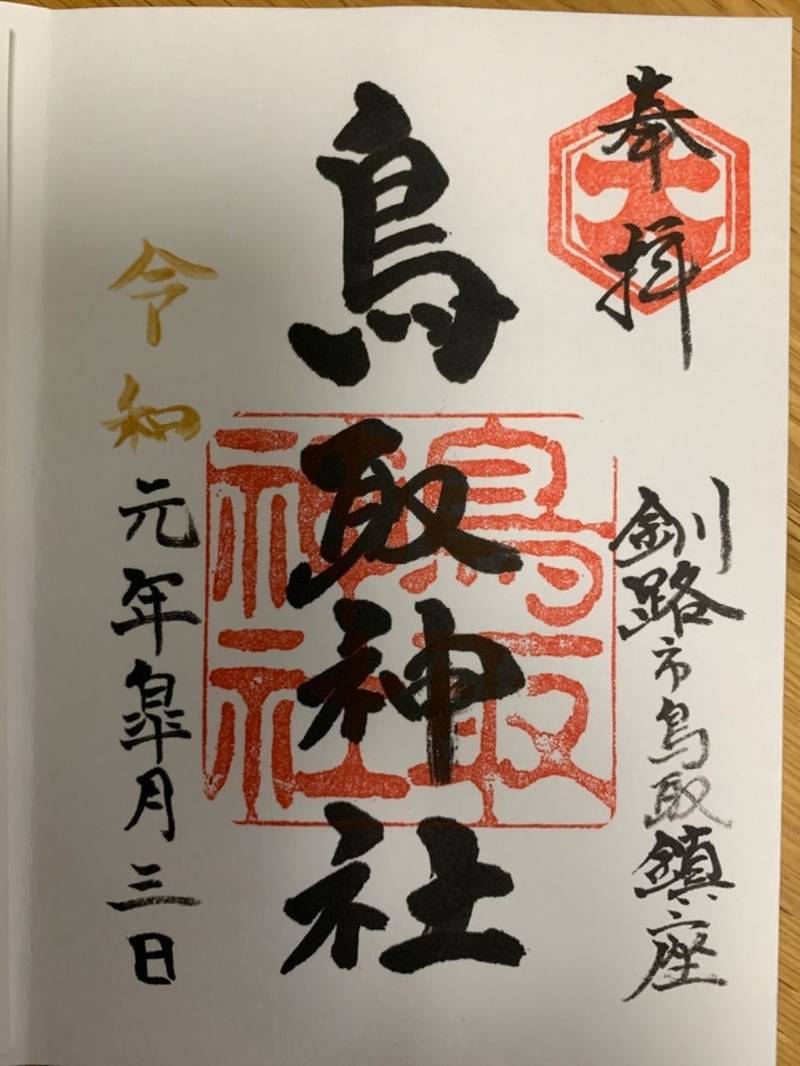 奉拝
釧路市鳥取鎮座
鳥取神社
鳥取神社
令和元年皐月三日